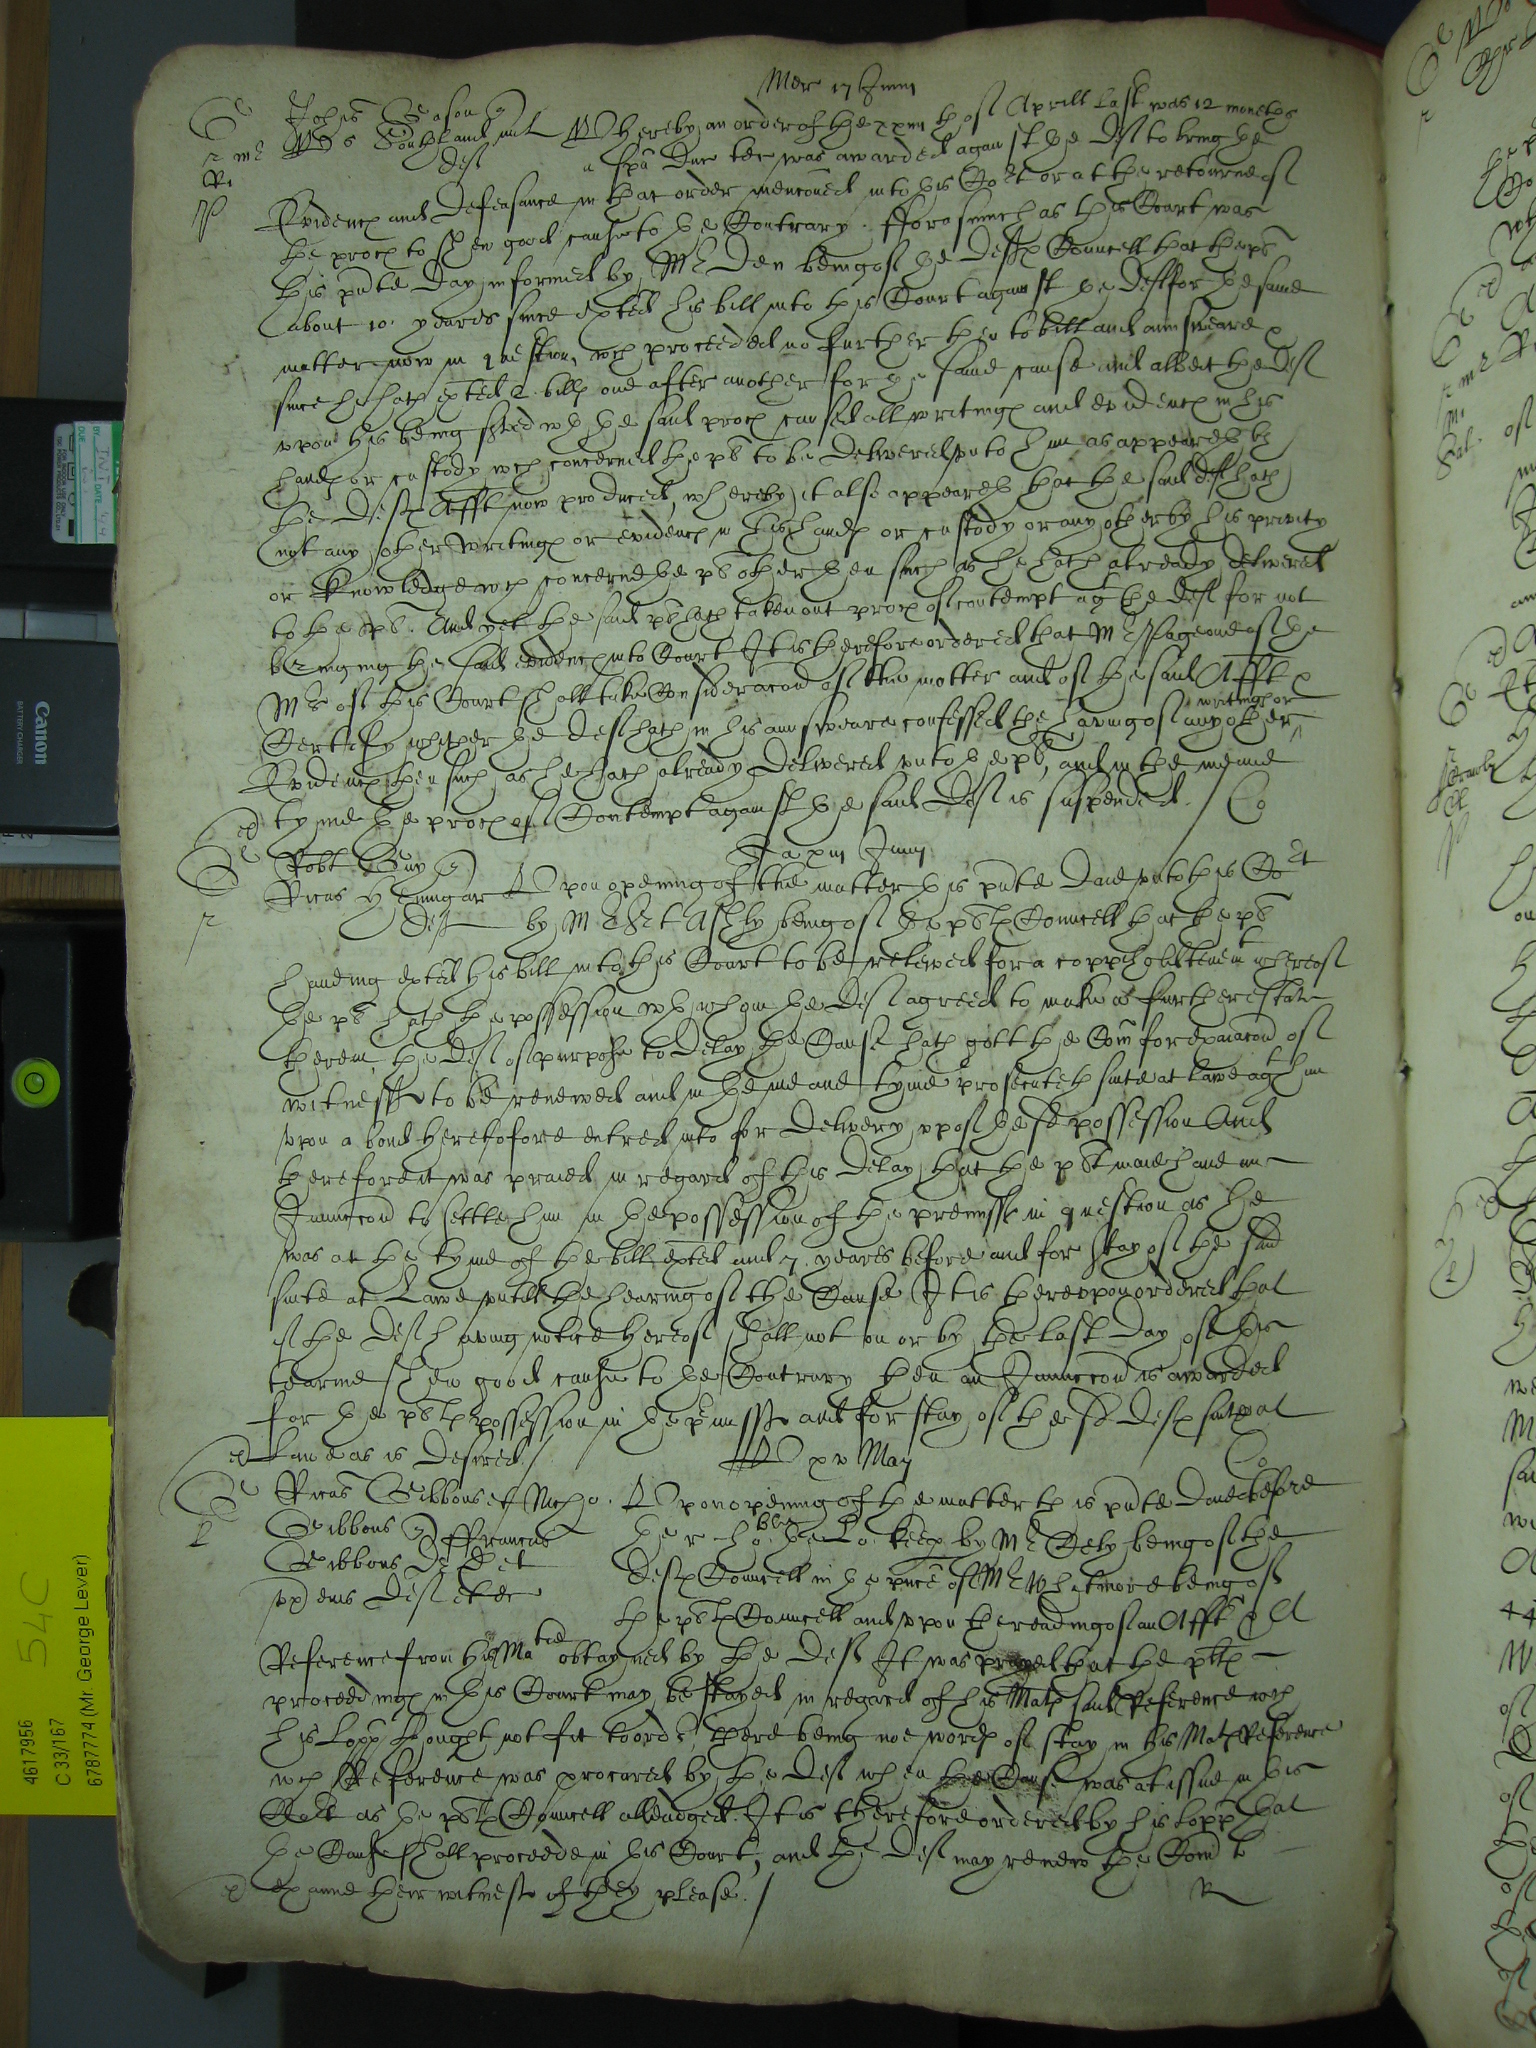 Mer 17 Junii
Johes Geason quer
Southland vid Whereby an order of the xxiiii th of Aprill last was 12 moneths
def a spa Duc tec was awarded against the def to bring the
Evidenc and Defeasance in that order menconed into this Court or at the retourne of
the proces to shew good cause to the Contrary. fforasmuch as this Court was
this pnte Day informed by Mr Den being of the defts Councell that the pl
about 10 yeares since exted his bill into this Court against the deft for the same
matter now in question, wch proceeded no further then to bill and aunsweare &
since he hath exted 2 bills one after another for the same cause and albeit the def
upon his being served wth the said proces caused all writings and evidences in his
hands or custody wch concerned the pl to be Delivered unto him as appeareth by
the Defts Afft now produced, whereby it also appeareth that the said deft hath
not any other writings or evidences in his hands or custody or any other by his privity
or knowledge wch concerne the pl other then such as he hath already delivered
to the pl. And yet the said pl hath taken out proces of contempt agt the def for not
bringing the said evidences into Court It is therefore ordered that Mr Page one of the
Mrs of this Court shall take Consideracon of the matter and of the said Afft &
writings or
Certify whither the Deft hath in his aunsweare confessed the having of any other
Evidences then such as he hath already Delivered unto the pl, and in the meane
tyme the proces of Contempt against the said Def is suspended. Co
Ja xiii Junii
Robt Guy quer
Ricus def Upon opening of the matter this pnte Daie unto this Court
by Mr Sert Ashly being of the plts Councell that the pl
haveing exted his bill into this Court to be releived for a coppihold tenemt whereof
the pl hath the possession wth whom the Def agreed to make a further estate
therein, the Def of purpose to Delay the Cause hath gott the Com for exaiacon of
witnesses to be renewed and in the meane tyme prosecuteth suite at lawe agt him
upon a bond heretofore entred into for Delivery upp of the sd possession And
therefore it was praied in regard of this Delay that the plt maie have an
Iniunccon to settle him in the possession of the premisses in question as he
was at the tyme of the bill exted and 7 yeares before and for stay of the said
suite at Lawe untill the hearing of the Cause It is thereupon ordered that
if the Def having notice hereof shall not on or by the last Day of this
tearme shew good cause to the Contrary then an Iniunccon is awarded
for the plts possession in the premisses and for stay of the sd Defts suite at
lawe as is desired. Co
xv May
Ricus Gibbons et Nicho. Upon opening of the matter this pnte Daie before
Gibbons quer ffranciscus the r. ho:ble the Lo: keeper by Mr Cely being of the
Gibbons def et Defts Councell in the pnce of Mr Whitmore being of
def et ec the plts Councell and upon the reading of an Afft & A
Reference from his Matie obtayned by the Def It was prayed that the plts
proceedings in this Court may be stayed in regard of his Mats said Reference wch
his Lopp thought not fit to order there being noe words of stay in his Mats Reference
wch Reference was procured by the Def when the Cause was at issue in this
Court as the plts Councell alleadged. It is therefore ordered by his Lopp that
the Cause shall proceede in this Court, and the Def may renew the Com to
examine their witnesses if they please. R
Canon
BATTERY CHARGER
54C
4617956
C 33/167
6787774 (Mr. George Lever)